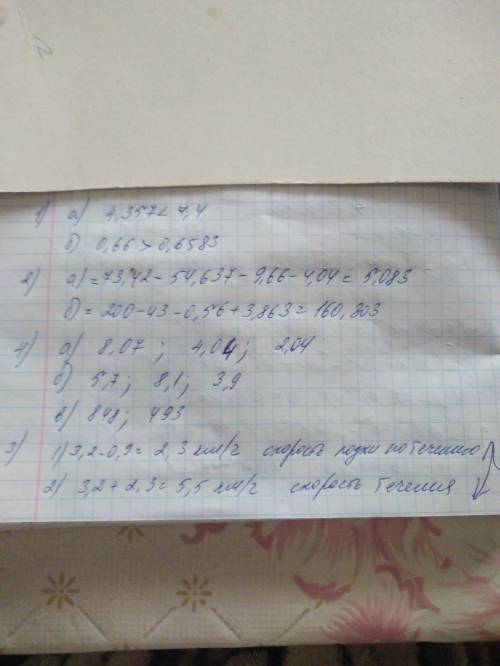 1) а) 4,357 < 7,4
б) 0,66 > 0,6583
2) а) = 73,42 - 54,637 - 9,66 - 4,04 = 5,083
б) = 200 - 43 - 0,56 + 3,863 = 160,803
4) а) 8,07 ; 4,04; 2,04
б) 5,7; 8,1; 3,9
в) 848; 493
3) 1) 3,2 - 0,9 = 2,3 км/ч скорость лодки по течению
2) 3,2 + 2,3 = 5,5 км/ч скорость течения